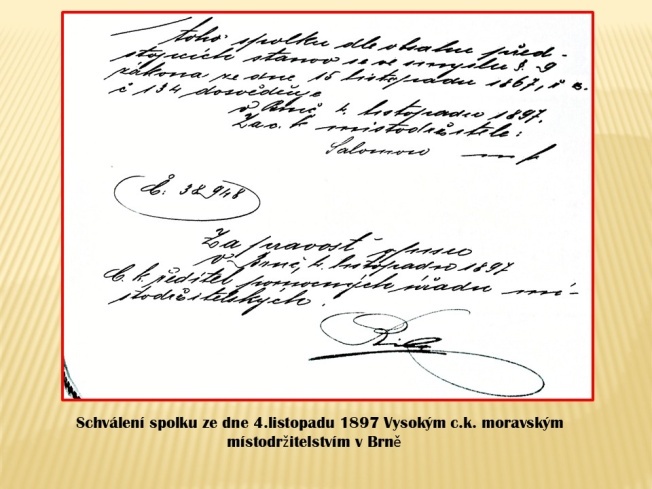 toho spolku dle obsahu před-
stojících stanov se ve smyslu §. 9
zákona ze dne 15 listopadu 1867, ř. z.
č 134 dosvědčuje
v Brně 4. listopadu 1897.
Za c. k. místodržitele:
Salomon m p
Č: 38948
Za pravost opisu
v Brně, 4. listopadu 1897
C. k. ředitel pomocných úřadů mí-
stodržitelských.
Schválení spolku ze dne 4.listopadu 1897 Vysokým c.k. moravským
místodržitelstvím v Brně